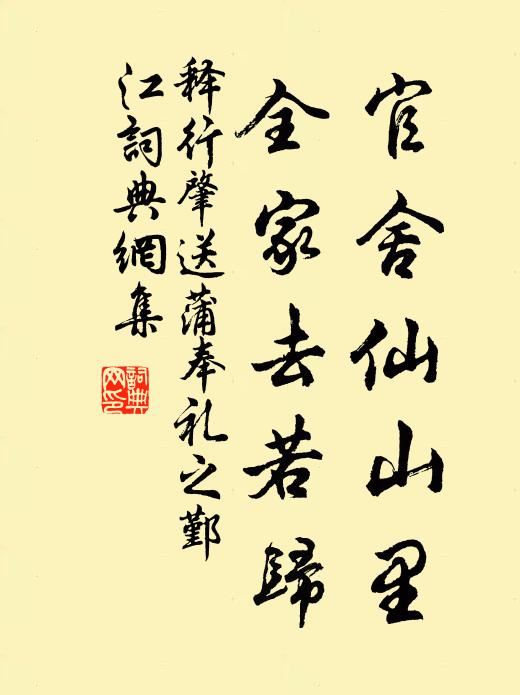 官舍仙山里
全家去若歸
释行肇送蒲奉礼之鄞
江詞典網集
詞典網印